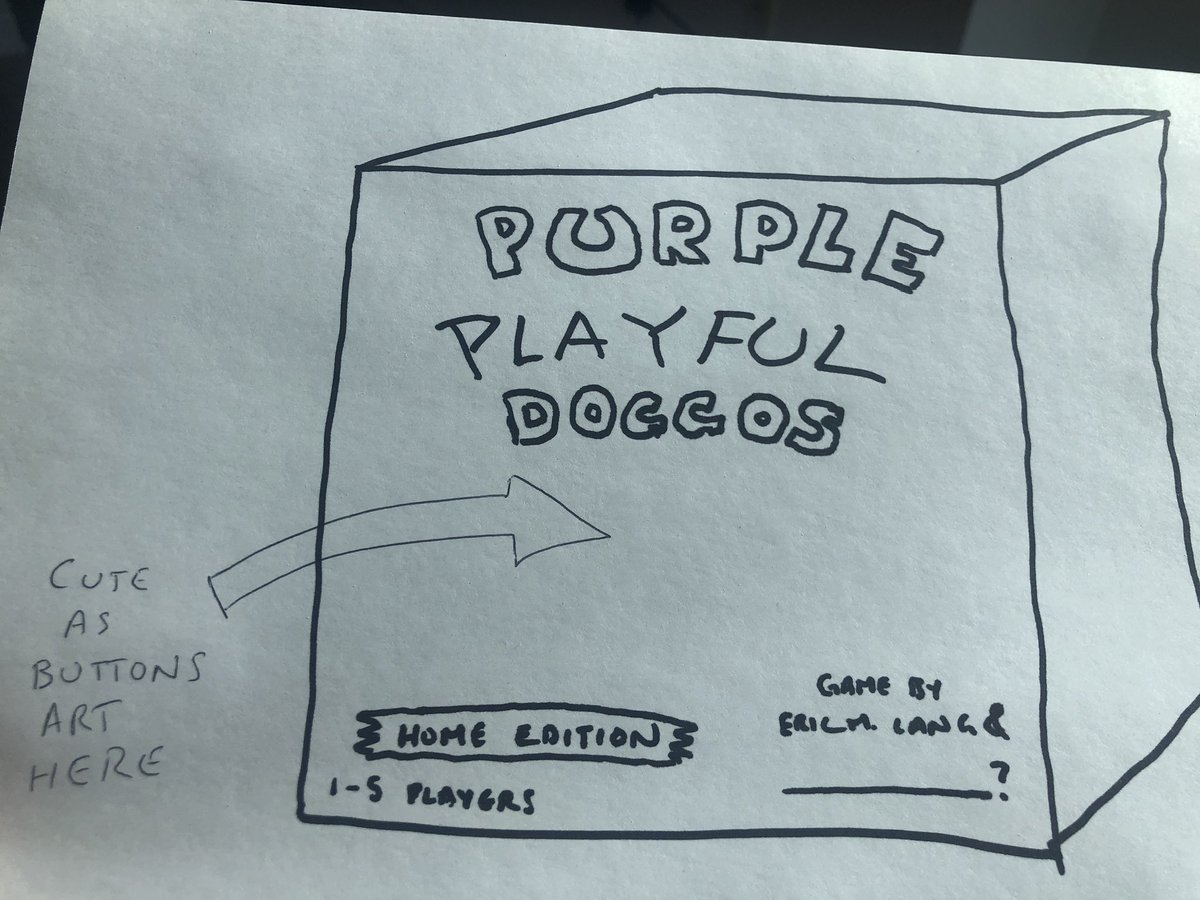 PURPLE
PLAYFUL
DOGGOS
CUTE
AS
BUTTONS
ART
HERE
HOME EDITION
1-5 PLAYERS
GAME BY
ERIC M. LANG &
?